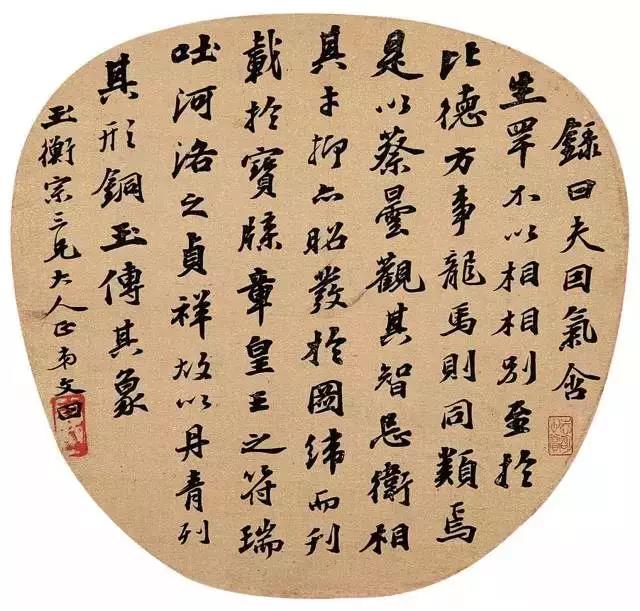 錄曰夫囙氣含
生罕不以相相別至於
比德方事龍馬則同類焉
是以蔡曇觀其智忌衛相
其才抑亦昭發於圖緯而刊
載於寶牒章皇王之符瑞
吐河洛之貞祥故以丹青列
其形銅玉傳其象
玉衡宗三兄大人正弟文田